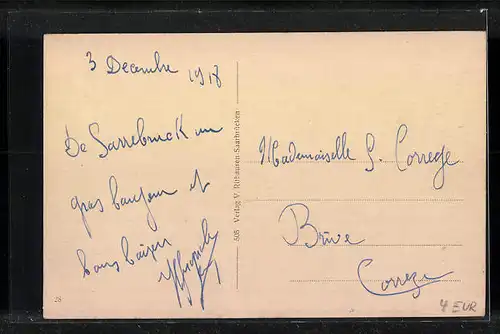 3 Decembre 1918
De Sarrebruck un
gros et
bons
505 Verlag V. Rithausen, Saarbrücken
Mademoiselle S. Correge
Brive
Correze
28
4 EUR